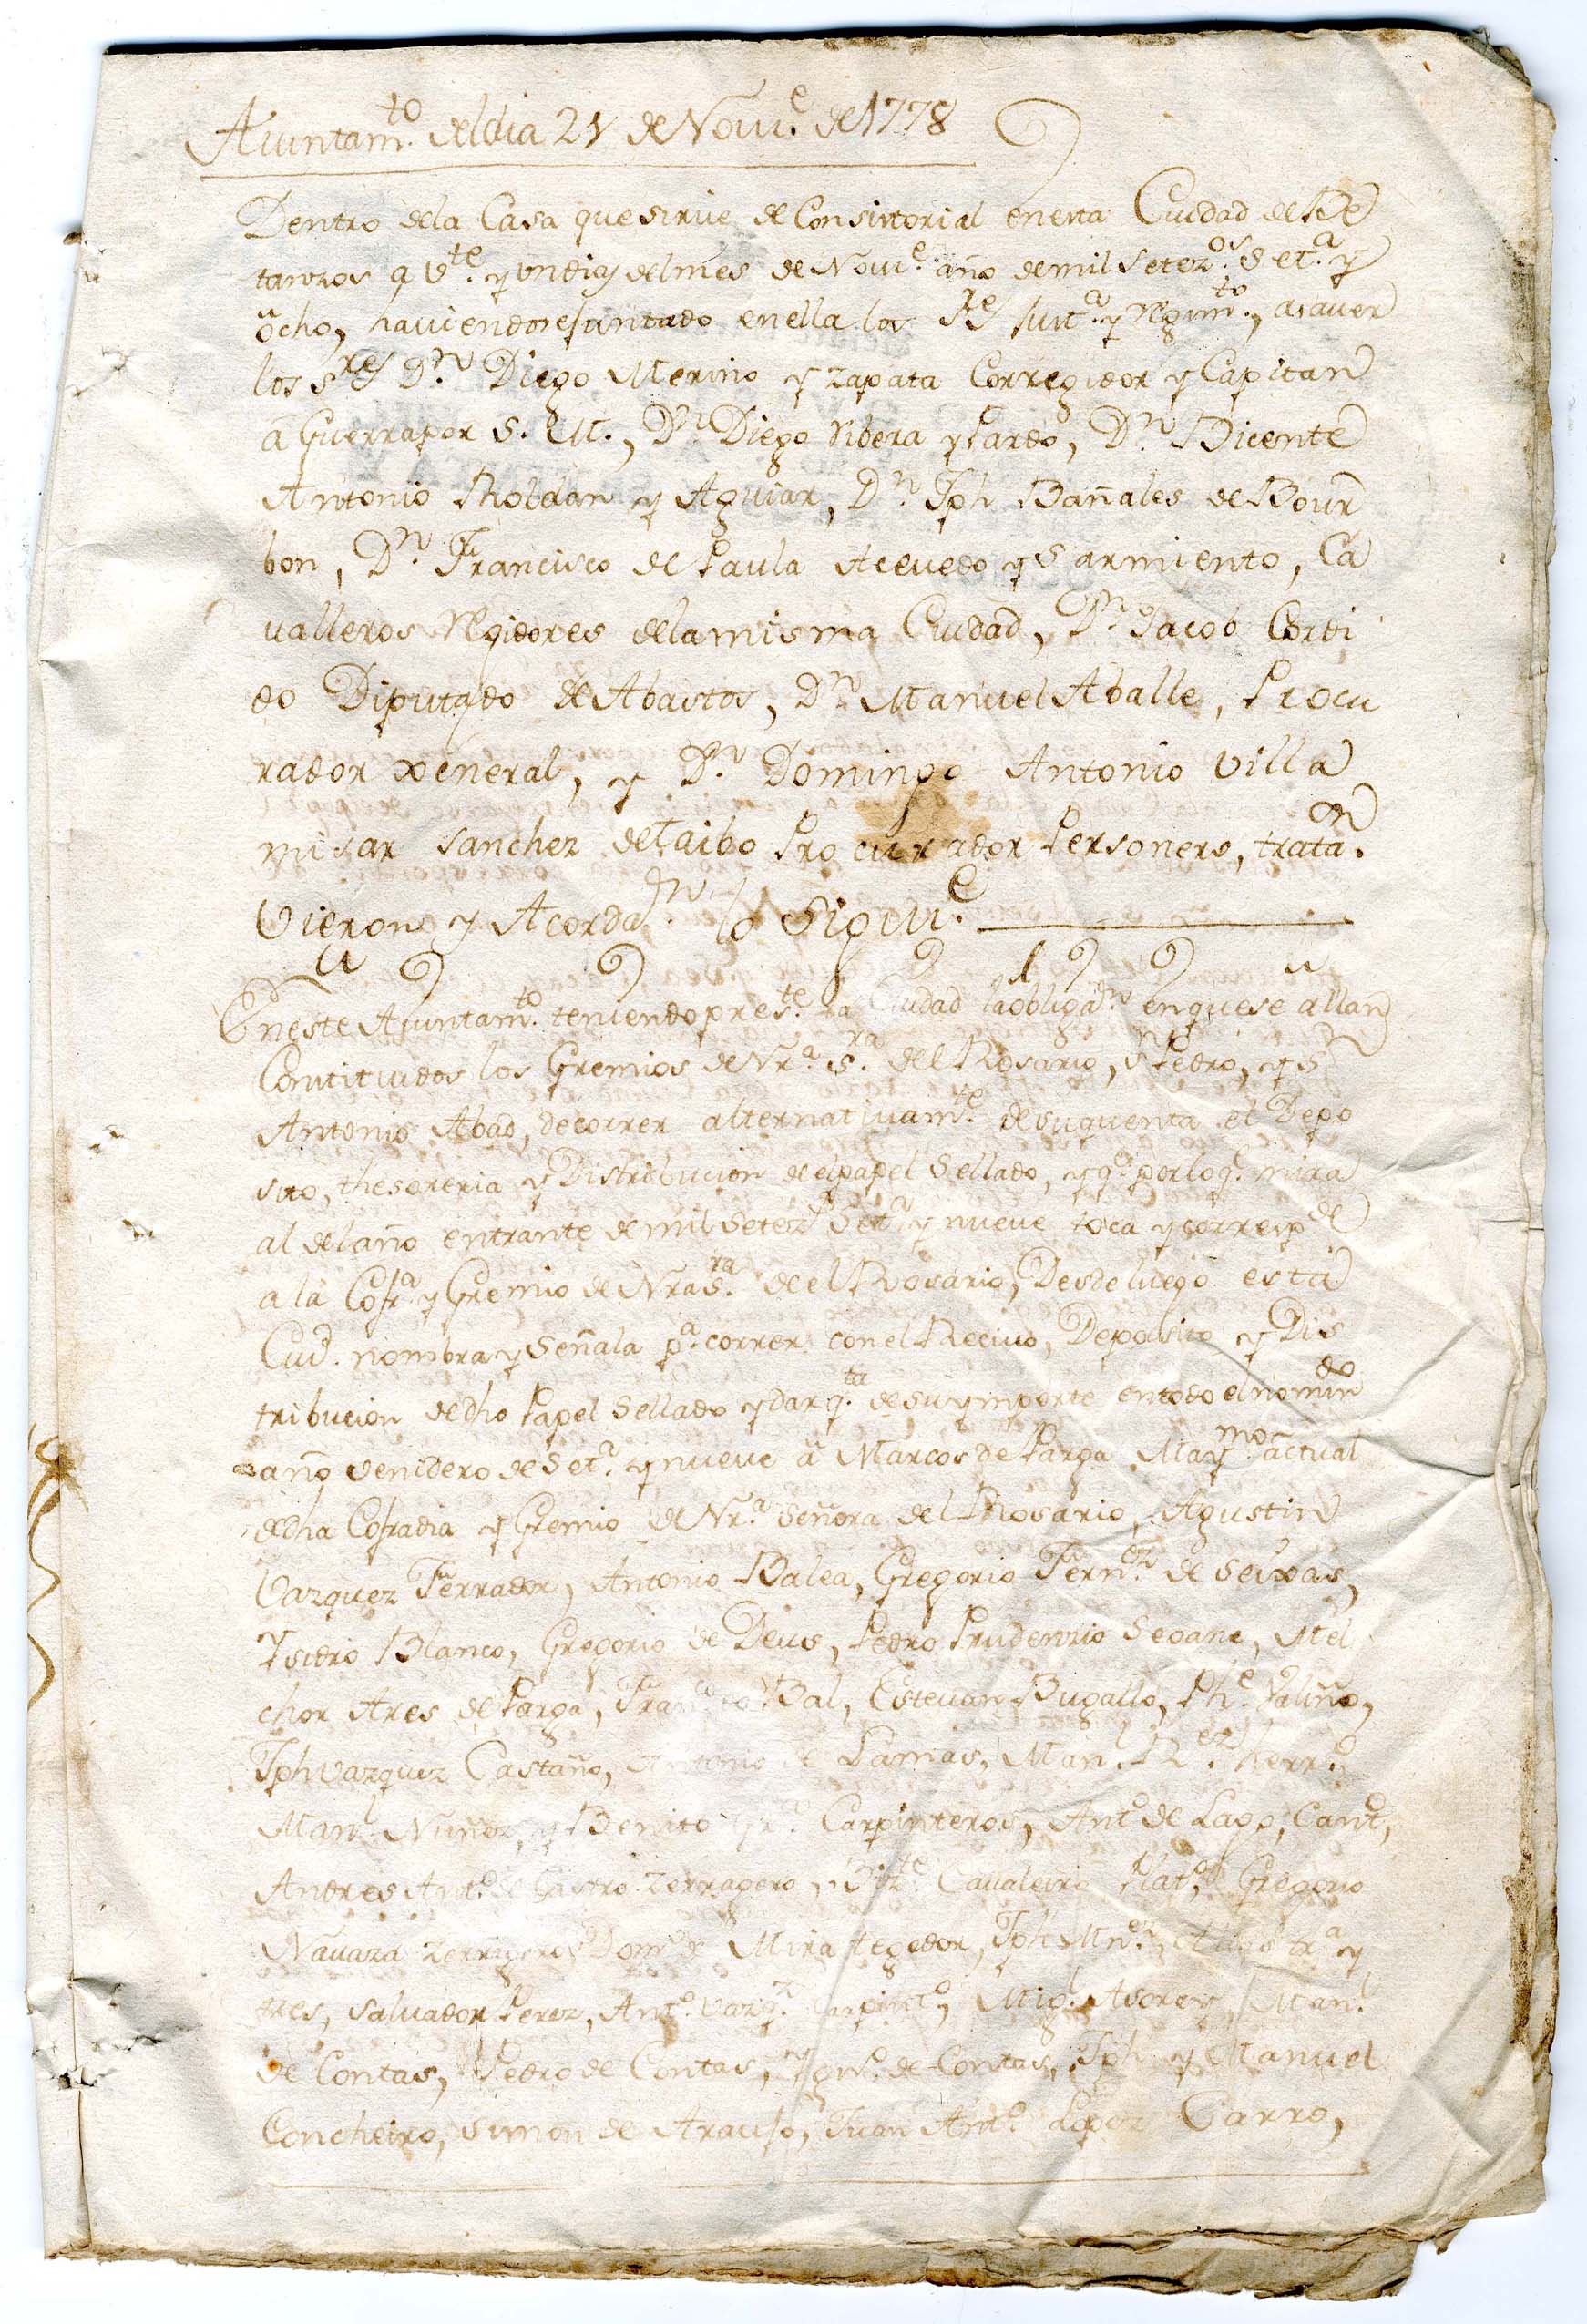 Aiuntam.to del dia 21 de Nov.e de 1778
Dentro de la Casa que sirve de Consistorial en esta Ciudad de Be
tanzos a V.te y un dias del mes de Nov.e año de mil setez.os set.a y
ocho, haviendose juntado en ella los S.res Just.a y Regim.to, asaver
los S.res D.n Diego Merino y Zapata Corregidor y Capitan
a Guerra por S. M., D.n Diego Ribera y Pardo, D.n Bicente
Antonio Roldan y Aguiar, D.n Jph Bañales de Bour
bon, D.n Francisco de Paula Acevedo y Sarmiento, Ca
valleros Regidores de la misma Ciudad, D.n Jacob Cordi
do Diputado de Abastos, D.n Manuel Aballe, Procu
rador xeneral, y D.n Domingo Antonio Villa
misar Sanchez de Taibo Procurador Personero, trata.on
Vieron y Acorda.on lo Sigui.e
En este Aiuntam.to teniendo pres.te la Ciudad la obligaz.n en que se allan
Constituidos los Gremios de Nr.a S.ra del Rosario, S.n Pedro, y S.n
Antonio Abad, de correr alternativam.te de su quenta el Depo
sito, thesoreria y Distribucion de el papel Sellado, y q.e por lo q.e mira
al del año entrante de mil setez.s set.a y nueve toca y corresp.de
a la Cofr.a y Gremio de Nra S.ra de el Rosario, Desde luego esta
Ciud. nombra y Señala p.a correr con el Recivo, Deposito y Dis
tribucion de dho Papel Sellado y dar q.ta de su ymporte en todo el nomin.do
año venidero de Set.a y nueve a Marcos de Parga May.mo actual
de dha Cofradia y Gremio de Nr.a Señora del Rosario, Agustin
Vazquez Ferrador, Antonio Balea, Gregorio Fern.ez de Seixas,
Ysidro Blanco, Gregorio de Deus, Pedro Prudenzio Seoane, Mel
chor Ares de Parga, Francisco Bal, Estevan Bugallo, Ph.e Paliño,
Jph Vazquez Castaño, Antonio de Lamas, Man.l R.ez
Man.l Nuñez, y Benito Carpinteros, Ant.o de Lago, Cant.o,
Andres Ant.o de Castro Zerragero, Biz.te Cavaleiro Plat.o, Gregorio
Navaza Zerragero, Dom.o de Mira tegedor, Jph
tres, Salvador Perez, Ant.o Vazq.z Carpint.o, Mig.l Asorey, Man.l
de Contas, Pedro de Contas, de Contas, Jph y Manuel
Concheiro, Simon de Araujo, Juan Ant.o Lopez Carro,